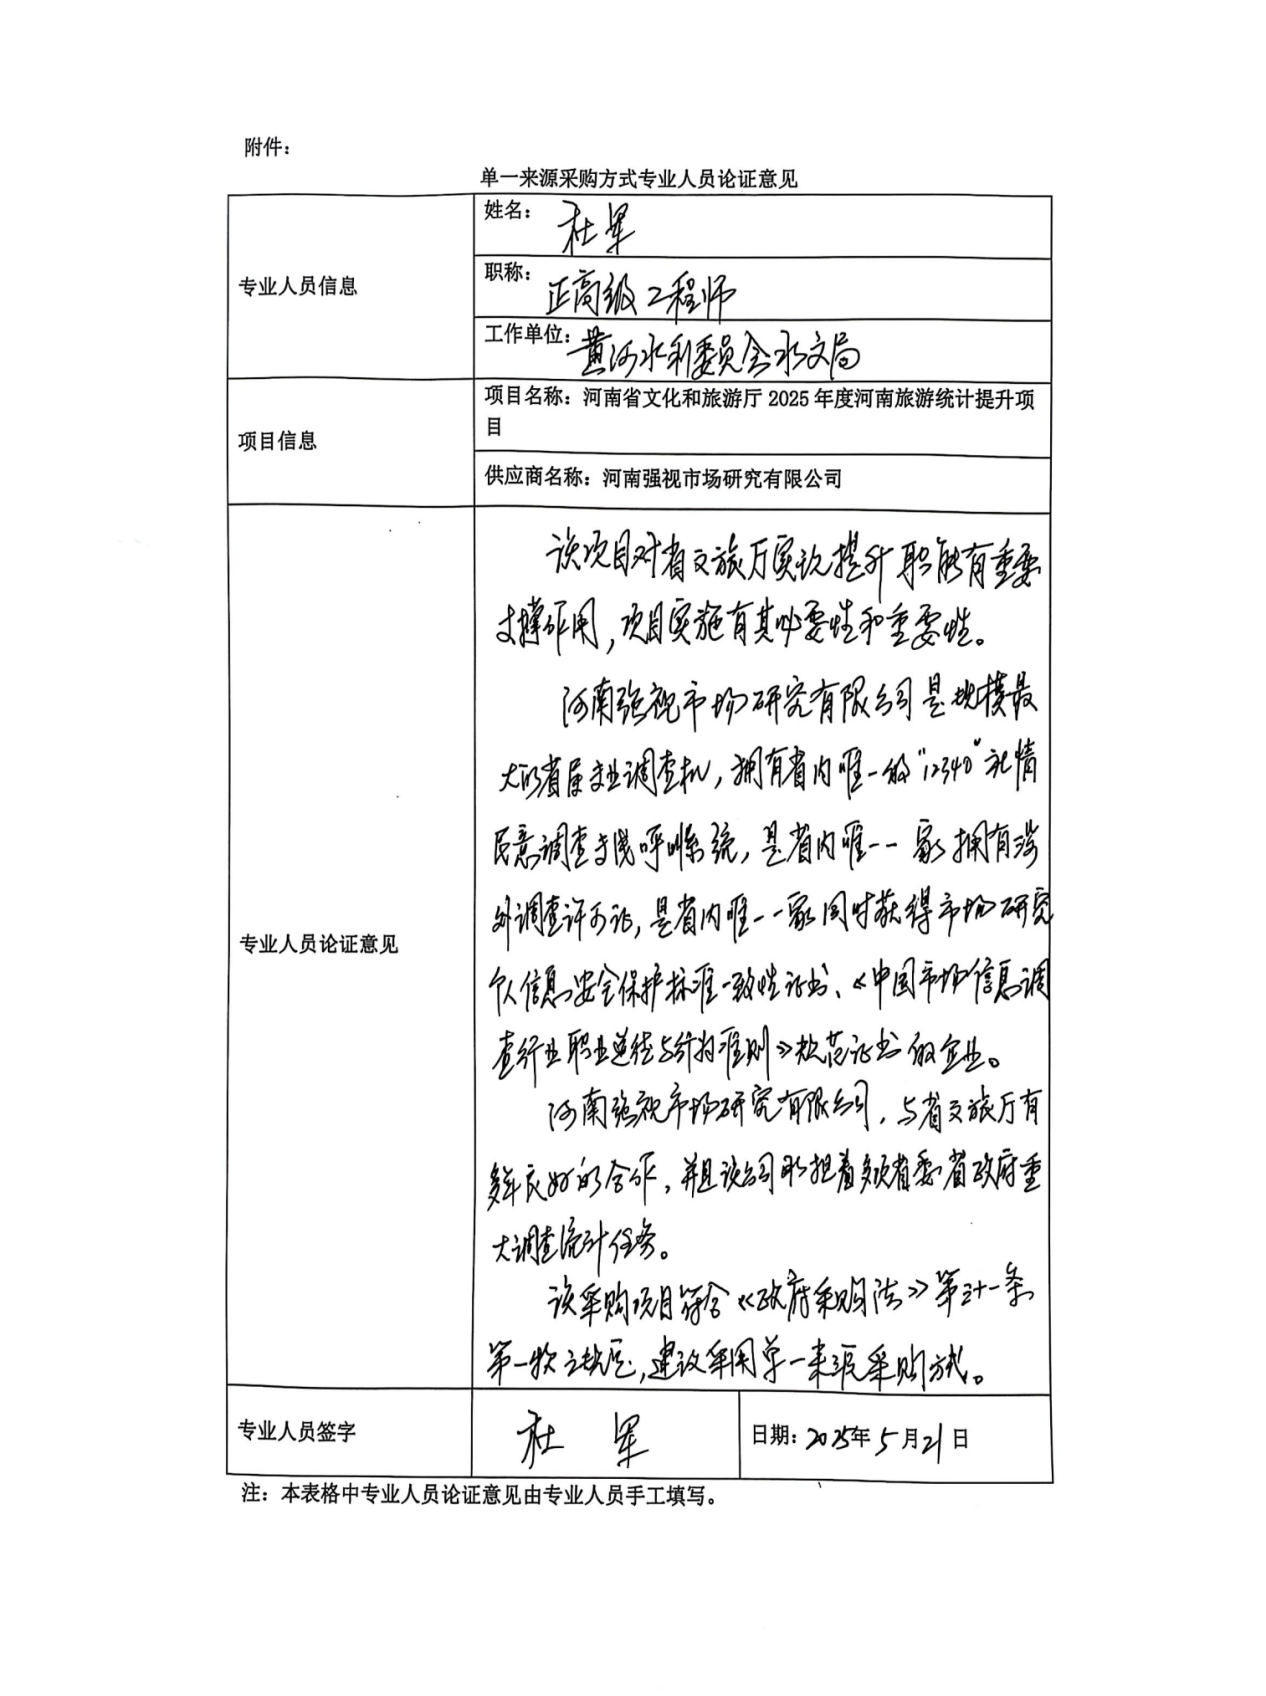 附件：
单一来源采购方式专业人员论证意见
专业人员信息
姓名：杜军
职称：正高级工程师
工作单位：黄河水利委员会水文局
项目信息
项目名称：河南省文化和旅游厅 2025 年度河南旅游统计提升项
目
供应商名称：河南强视市场研究有限公司
专业人员论证意见
该项目对省文旅厅实议提升职能有重要
支撑作用，项目实施有其必要性和重要性。
河南强视市场研究有限公司是规模最
大的省属专业调查机，拥有省内唯一的“12340”社情
民意调查专线呼叫系统，是省内唯一一家拥有涉
外调查许可证，是省内唯一一家同时获得市场研究
个人信息安全保护标准一致性证书、《中国市场信息调
查行业职业道德与行为准则》规范证书的企业。
河南强视市场研究有限公司，与省文旅厅有
多年良好的合作，并且该公司承担着多项省委省政府重
大调查统计任务。
该采购项目符合《政府采购法》第三十一条
第一款之规定，建议采用单一来源采购方式。
专业人员签字
杜军
日期：2025年5月21日
注：本表格中专业人员论证意见由专业人员手工填写。